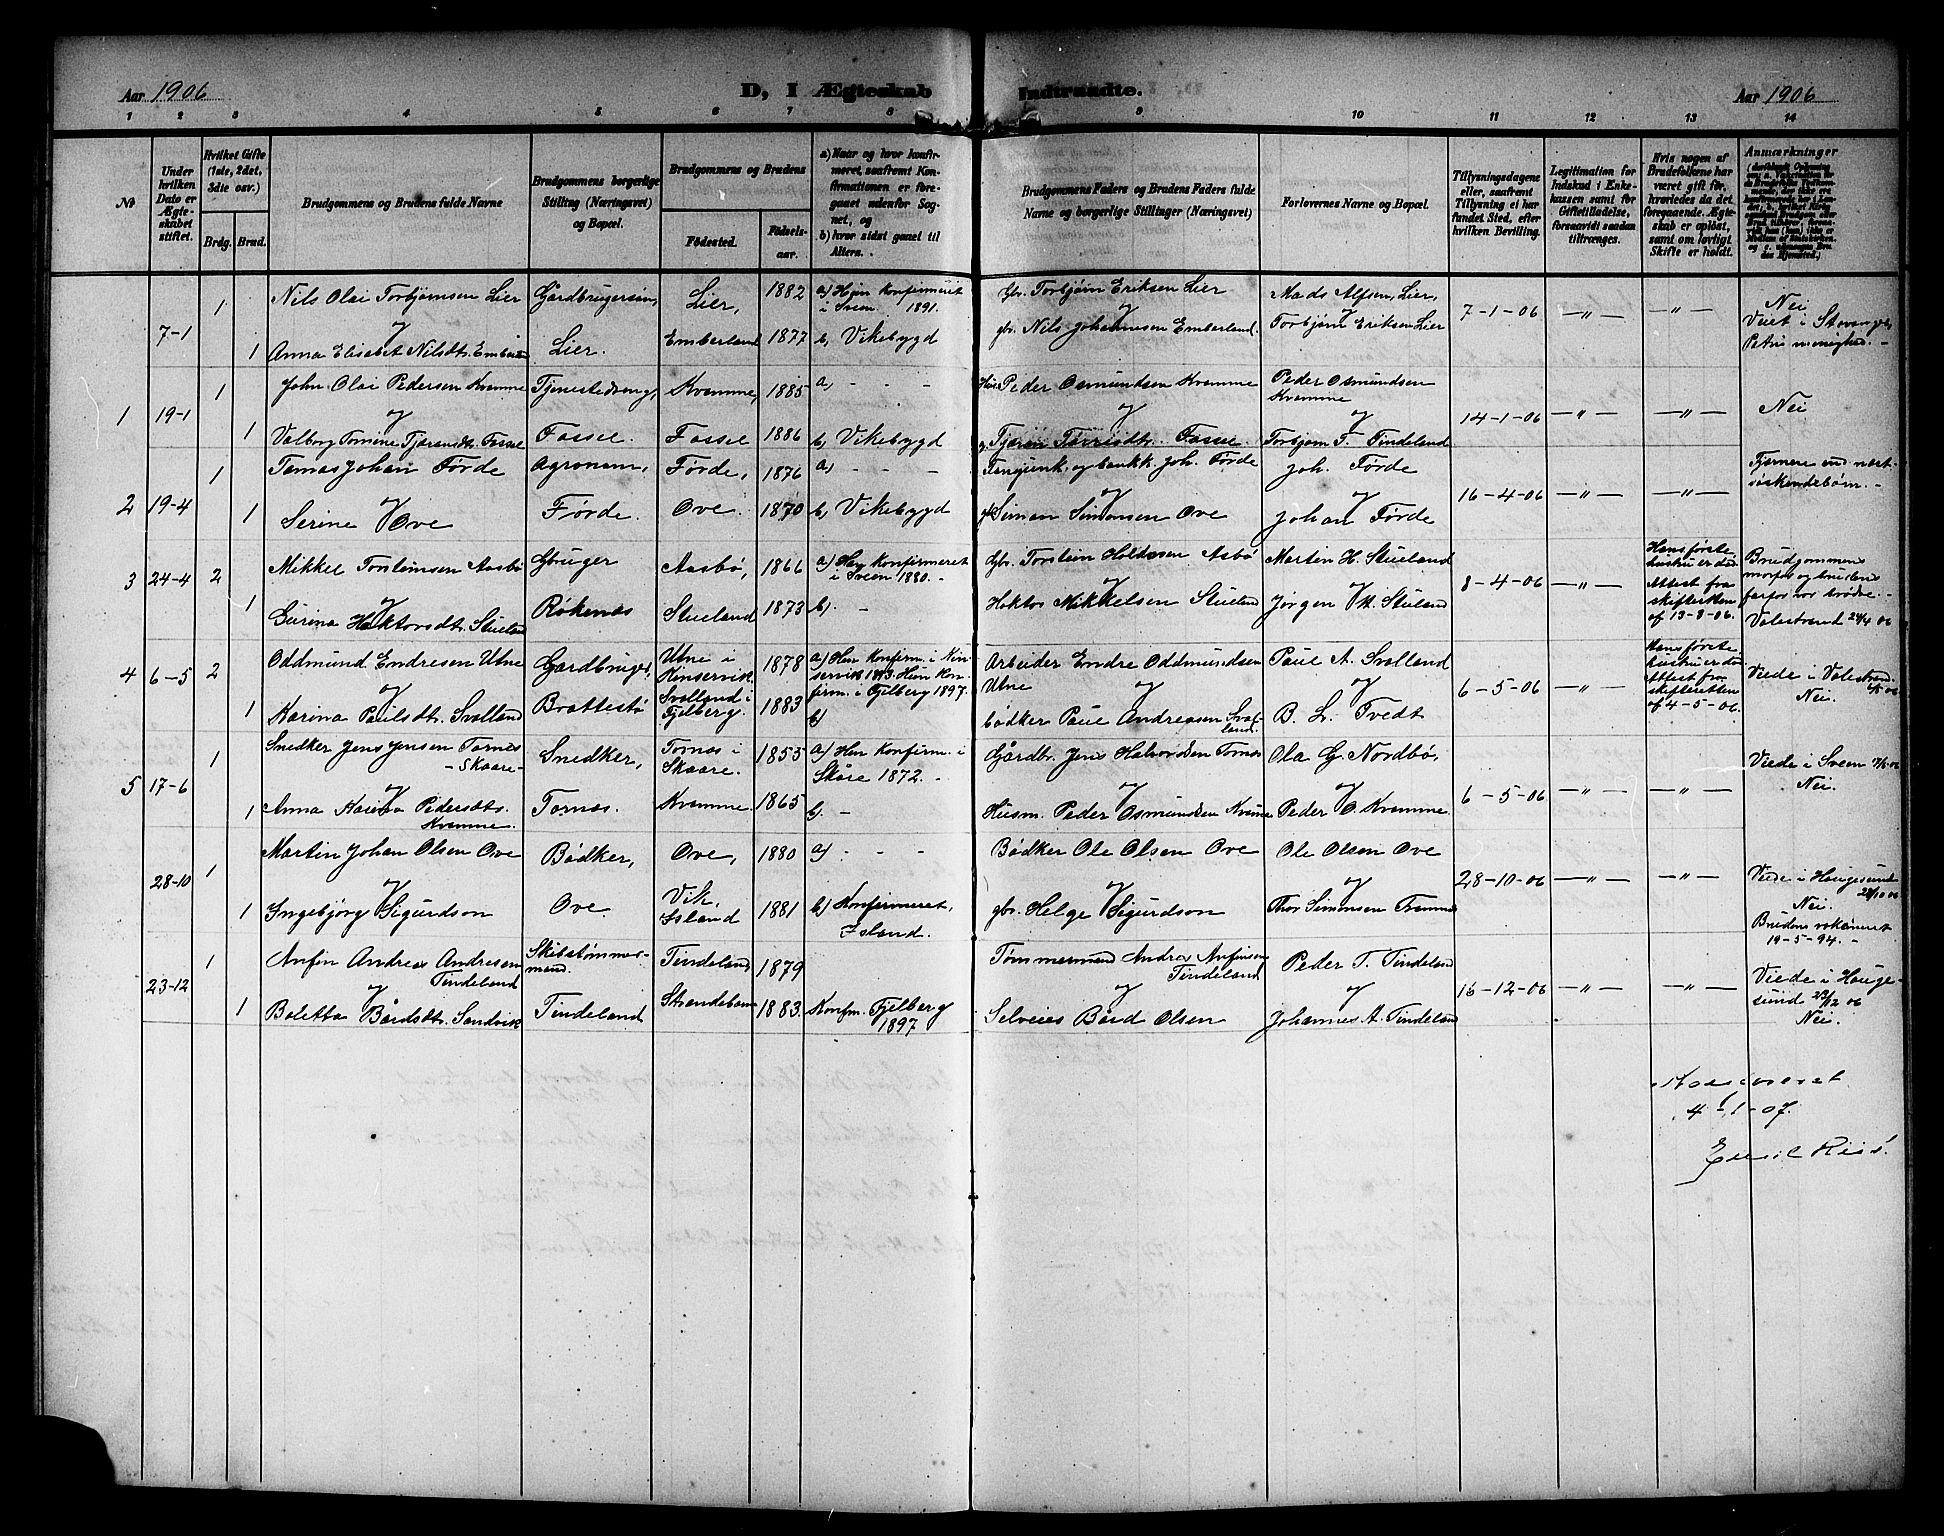 Aar 1906
D, I Ægteskab Indtraadte.
Aar 1906
1 2 3 4 5 6 7 8 9 10 11 12 13 14
No
Under hvilken Dato er Ægteskabet stiftet.
Hvilket Gifte (1ste, 2det, 3die osv.)
Brdg. Brud.
Brudgommens og Brudens fulde Navne
Brudgommens borgerlige Stilling (Næringsvei) og Bopæl.
Brudgommens og Brudens
Fødested.
Fødselsaar.
a) Naar og hvor konfirmeret, saafremt Konfirmationen er foregaaet udenfor Sognet, og
b) hvor sidst gaaet til Alters.
Brudgommens Faders og Brudens Faders fulde Navne og borgerlige Stillinger (Næringsvei)
Forlovernes Navne og Bopæl.
Tillysningsdagene eller, saafremt Tillysning ei har fundet Sted, efter hvilken Bevilling.
Legitimation for Indskud i Enkekassen samt for Giftetilladelse, forsaavidt saadan tiltrænges.
Hvis nogen af Brudefolkene har været gift før, hvorledes da det foregaaende Ægteskab er opløst, samt om lovligt Skifte er holdt.
Anmærkninger
7-1 1 Nils Olai Torbjørnsen Lier Gårdbrugersøn, Lier, 1882 a) Hun Konfirmeret i Sveen 1891. Gbr. Torbjørn Eriksen Lier Mads Alfsen, Lier, 7-1-06 —"— —"— Nei
og
1 Anna Elisabet Nilsdt. Emberland Lier. Emberland 1877 b) Vikebygd gbr. Nils Johannesen Emberland. Torbjørn Eriksen Lier Viet i Stavanger Petri menighed. -
1 19-1 1 John Olai Pedersen Kvamme Tjenestedreng, Kvamme, 1885 a) - - - Husm. Peder Osmundsen Kvamme Peder Osmundsen Kvamme 14-1-06 —"— —"— Nei
og
1 Valborg Tomine Fosse Fosse. Fosse 1886 b) Vikebygd Fosse. Torbjørn T. Tindeland
2 19-4 1 Tomas Johan Førde Agronom, Førde, 1876 a) - - - og bankk. Joh. Førde Joh. Førde 16-4-06 —"— —"— Fjernere end næstsøskendebørn. -
og
1 Serine Ove Førde. Ove. 1870 b) Vikebygd Simon Simonsen Ove Johan Førde
3 24-4 2 Mikkel Torsteinsen Aasbø Gbruger Aasbø, 1866 a) Han Konfirmeret i Sveen 1880. - Gbr. Torstein Asbø Martin H. Stueland 8-4-06 —"— Hans første hustru er død Attest fra skifteretten af 13-3-06. Brudgommens morfar og brudens farfar var brødre. -
og
1 Gurina Haktorsdt. Stueland Røkenes Stueland 1873 b). - Haktor Mikkelsen Stueland Jørgen M. Stuland Valestrand 24/4 06
4 6-5 2 Oddmund Endresen Utne Gardbruger, Utne i Kinservik 1878 a) Han Konfirm. i Kinservik 1893. Hun Konfirm. i Fjelberg 1897. Arbeider Endre Oddmundsen Utne Paul A. Svolland 6-5-06 —"— Hans første hustru er død Attest fra skifteretten af 4-5-06. Viede i Valestrand 6/5 06
og
1 Karina Paulsdt. Svolland Brattestø Svolland i Fjelberg. 1883 b) bødker Paul Andreasen Svolland. B. L. Tvedt Nei.
5 17-6 1 Snedker Jens Jensen Tornes -Skaare- Snedker, Tornes i Skaare. 1855 a) Han Konfirm. i Skåre 1872. - Gårdbr. Jens Halvordsen Tornes Ola G. Nordbø, 6-5-06 —"— —"— Viede i Sveen
og
1 Anna Karina Pedersdt. Kvamme. Tornes. Kvamme. 1865 b). - Husm. Peder Osmundsen Kvame Peder O. Kvamme. Nei.
28-10 1 Martin Johan Olsen Ove Bødker, Ove, 1880 a) - - - Bødker Ole Olsen Ove Ole Olsen Ove 28-10-06 —"— —"— Viede i Haugesund 28/10 06
og
1 Ingebjørg Sigurdson Ove. Vik, Island 1881 b) Konfirmeret, Island. gbr. Helge Sigurdson Thor Simonsen Nei. Brudens vakcineret 19-5-94. -
23-12 1 Anfin Andreas Andresen Tindeland Skibstømmermand. Tindeland 1879 Tømmermand Andrea Anfinsen Tindeland Peder T. Tindeland 16-12-06 —"— —"— Viede i Haugesund 23/12 06
og
1 Boletta Bårdsdt. Sandvik Tindeland 1883. Konfm. Fjelberg 1897 Selveier Bård Olsen Johannes A. Tindeland Nei.
4-1-07.
Emil Riis